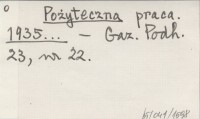 Pożyteczna praca.
1935... — Gaz. Podh.
23, nr 22.